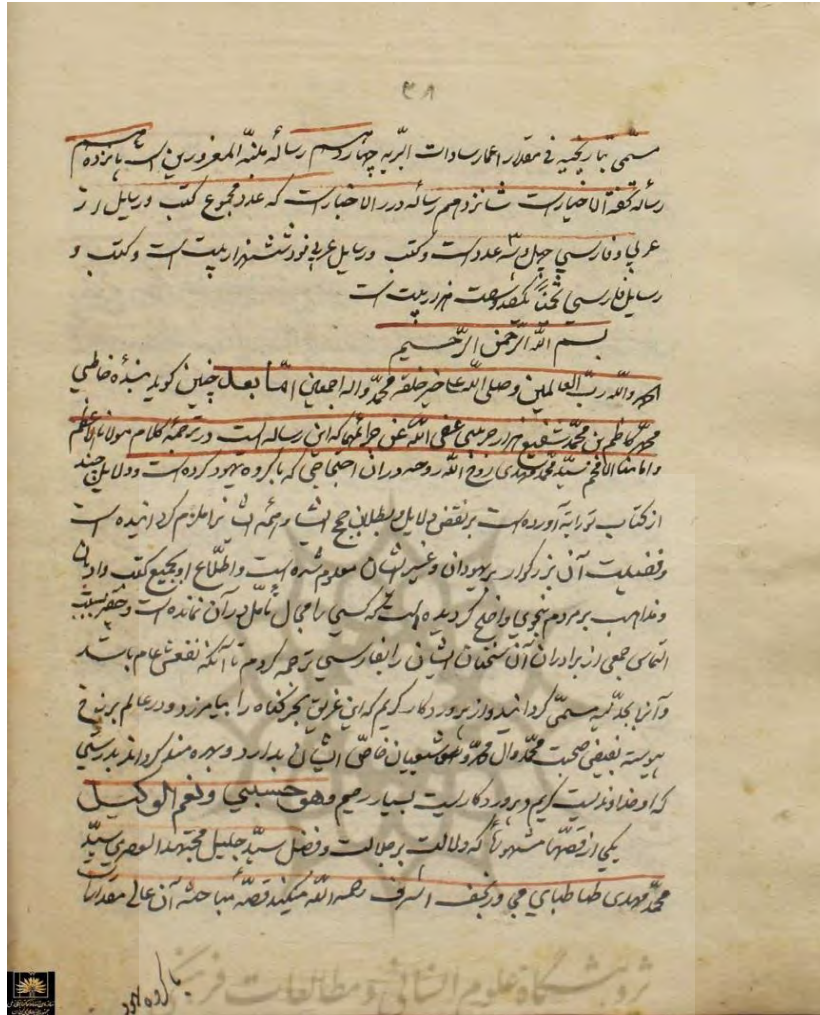 ۳۸
مسمّی بتاریخیه فی مقدار اعمار سادات البریه چهاردهم رسالهٔ منبّه المغرورین است پانزدهم
رساله تحفة الاخیار است شانزدهم رساله درر الاخبار است که عدد مجموع کتب و رسایل از
عربی و فارسی چهل و سه عدد است و کتب و رسایل عربی نود شش هزار بیت است و کتب و
رسایل فارسی تخمیناً یکصد و هفت هزار بیت است
بسم الله الرّحمن الرّحیم
الحمد لله ربّ العالمین وصلی الله علی خیر خلقه محمّد واله اجمعین امّا بعد چنین کوید بنده خاطی
محمّد کاظم بن محمّد شفیع هزارجریبی عفی الله عن جرائمهما که این رساله است در ترجمهٔ کلام مولانا الاعظم
وامامنا الافخم سیّد محمّد مهدی روّح الله روحه در ان احتجاجی که با کروه یهود کرده است و دلایل چند
از کتاب توراة آورده است بر نقض دلایل و بطلان حجج ایشان و ائمه ایشانرا ملزم کردانیده است
و فضیلت آن بزرکوار بر یهودان و غیر ایشان معلوم شده است و اطّلاع او بجمیع کتب و ادیان
و مذاهب بر مردم بنحوی واضح کردیده است که کسی را مجال تأمل در آن نمانده است و حقیر بسبب
التماس جمعی از برادران آن سخنان ایشان را بفارسی ترجمه کردم تا آنکه نفعش عام باشد
و آنرا بجدلیه مسمّی کردانید و از پروردکار کریم که این غریق بحر کناه را بیامرزد و در عالم برزخ
پیوسته بفیض صحبت محمّد وال محمّد و شیعیان خاصّ ایشان بدارد و بهره مند کرداند بدرستی
که او خداوندیست کریم و پروردکاریست بسیار رحیم وهو حسبی ونعم الوکیل
یکی از قصّهای مشهوره که دلالت بر جلالت و فضل سیّد جلیل مجتهد العصری سیّد
محمّد مهدی طباطبای مجاور نجف اشرف رحمه الله میکند قصّهٔ مباحثه آن عالی مقدار
با کروه یهود
پژوهشگاه علوم انسانی و مطالعات فرهنگی